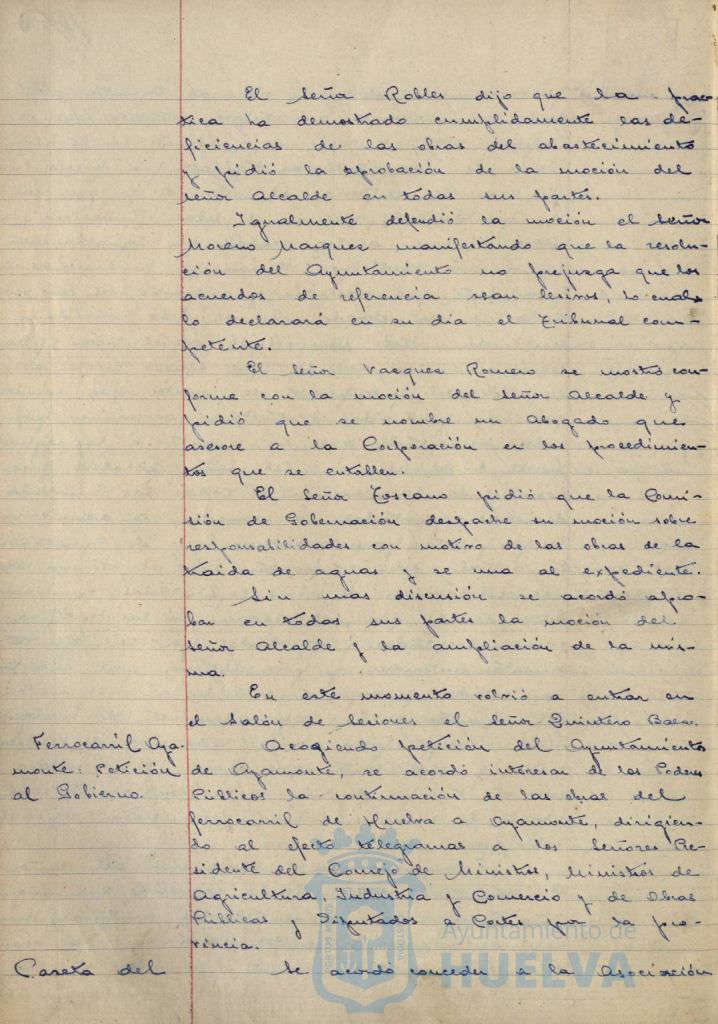 El Señor Robles dijo que la prac-
tica ha demostrado cumplidamente las de-
ficiencias de las obras del abastecimiento
y pidió la aprobación de la moción del
Señor Alcalde en todas sus partes.
Igualmente defendió la moción el Señor
Moreno Marquez manifestando que la resolu-
ción del Ayuntamiento no prejuzga que los
acuerdos de referencia sean lesivos, lo cual
lo declarará en su dia el Tribunal com-
petente.
El Señor Vazquez Romero se mostró con-
forme con la moción del Señor Alcalde y
pidió que se nombre un Abogado que
asesore a la Corporación en los procedimien-
tos que se entablen.
El Señor Toscano pidió que la Comi-
sión de Gobernación despache su moción sobre
responsabilidades con motivo de las obras de la
traida de aguas y se una al expediente.
Sin mas discusión se acordó apro-
bar en todas sus partes la moción del
Señor Alcalde y la ampliación de la mis-
ma.
En este momento volvió a entrar en
el Salón de Sesiones el Señor Quintero Baez.
Ferrocarril Aya-
monte: Petición
al Gobierno.
Acogiendo petición del Ayuntamiento
de Ayamonte, se acordó interesar de los Poderes
Públicos la continuación de las obras del
ferrocarril de Huelva a Ayamonte, dirigien-
do al efecto telegramas a los Señores Pre-
sidente del Consejo de Ministros, Ministros de
Agricultura, Industria y Comercio y de Obras
Públicas y Diputados a Cortes por la pro-
vincia.
Caseta del
Se acordó conceder a la Asociación
Ayuntamiento de
HUELVA